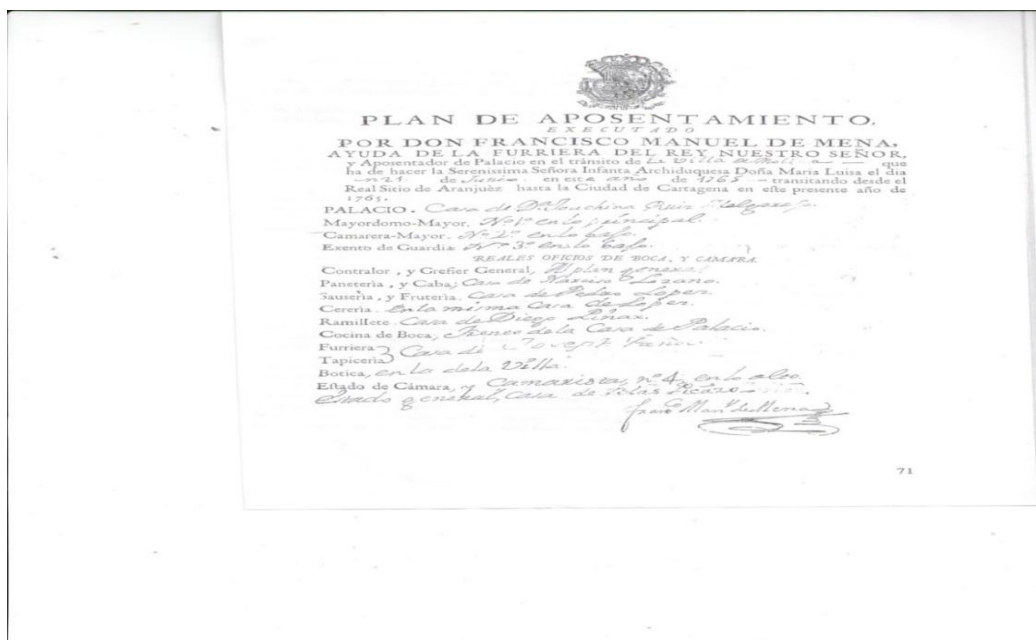 PLAN DE APOSENTAMIENTO,
EXECUTADO
POR DON FRANCISCO MANUEL DE MENA,
AYUDA DE LA FURRIERA DEL REY NUESTRO SEÑOR,
y Aposentador de Palacio en el tránsito de La Villa de que
ha de hacer la Serenissima Señora Infanta Archiduquesa Doña Maria Luisa el dia
21 de Junio en este año de 1765 transitando desde el
Real Sitio de Aranjuèz hasta la Ciudad de Cartagena en este presente año de
1765.
PALACIO. Casa de Dª Ruiz
Mayordomo-Mayor, Nº 1º en lo principal.
Camarera-Mayor. Nº 2º en lo bajo.
Exento de Guardia Nº 3º en lo bajo.
REALES OFICIOS DE BOCA, Y CAMARA.
Contralor, y Grefier General, Al plan general
Paneteria, y Caba, Casa de Narciso Lozano.
Sauseria, y Fruteria. Casa de Pedro Lopez.
Cereria. En la misma Casa de Lopez.
Ramillete. Casa de Diego
Cocina de Boca, de la Casa de Palacio.
Furriera } Casa de Joseph
Tapiceria
Botica, en la de la Villa.
Estado de Cámara, y Camarista, nº 4, en lo
Estado general, Casa de Blas
Franco Manl de Mena
71